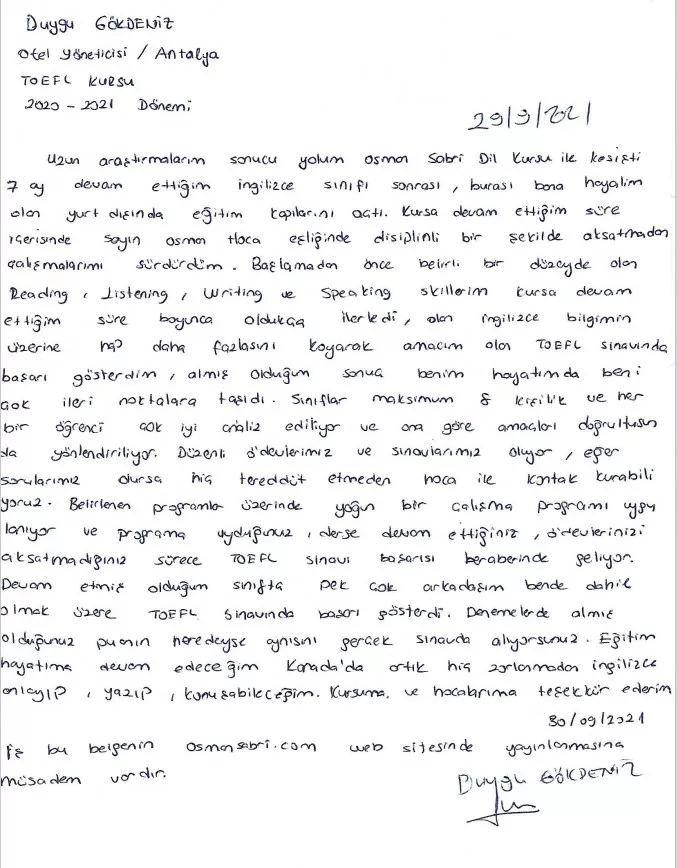 Duygu GÖKDENİZ
Otel Yöneticisi / Antalya
TOEFL KURSU
2020 - 2021 Dönemi
29/9/2021
Uzun araştırmalarım sonucu yolum Osman Sabri Dil Kursu ile kesişti
7 ay devam ettiğim ingilizce sınıfı sonrası, burası bana hayalim
olan yurt dışında eğitim kapılarını açtı. Kursa devam ettiğim süre
içerisinde sayın Osman Hoca eşliğinde disiplinli bir şekilde aksatmadan
çalışmalarımı sürdürdüm. Başlamadan önce belirli bir düzeyde olan
Reading, Listening, Writing ve Speaking skillerim kursa devam
ettiğim süre boyunca oldukça ilerledi, olan ingilizce bilgimin
üzerine hep daha fazlasını koyarak amacım olan TOEFL sınavında
başarı gösterdim, almış olduğum sonuç benim hayatımda beni
çok ileri noktalara taşıdı. Sınıflar maksimum 8 kişilik ve her
bir öğrenci çok iyi analiz ediliyor ve ona göre amaçları doğrultusun
da yönlendiriliyor. Düzenli ödevlerimiz ve sınavlarımız oluyor, eğer
sorularımız olursa hiç tereddüt etmeden hoca ile kontak kurabili
yoruz. Belirlenen programlar üzerinde yoğun bir çalışma programı uygu
lanıyor ve programa uyduğunuz, derse devam ettiğiniz, ödevlerinizi
aksatmadığınız sürece TOEFL sınavı başarısı beraberinde geliyor.
Devam etmiş olduğum sınıfta pek çok arkadaşım bende dahil
olmak üzere TOEFL sınavında başarı gösterdi. Denemelerde almış
olduğunuz puanın neredeyse aynısını gerçek sınavda alıyorsunuz. Eğitim
hayatıma devam edeceğim Kanada'da artık hiç zorlanmadan ingilizce
anlayıp, yazıp, konuşabileceğim. Kursuma ve hocalarıma teşekkür ederim
30/09/2021
İş bu belgenin osmansabri.com web sitesinde yayınlanmasına
müsadem vardır.
Duygu GÖKDENİZ